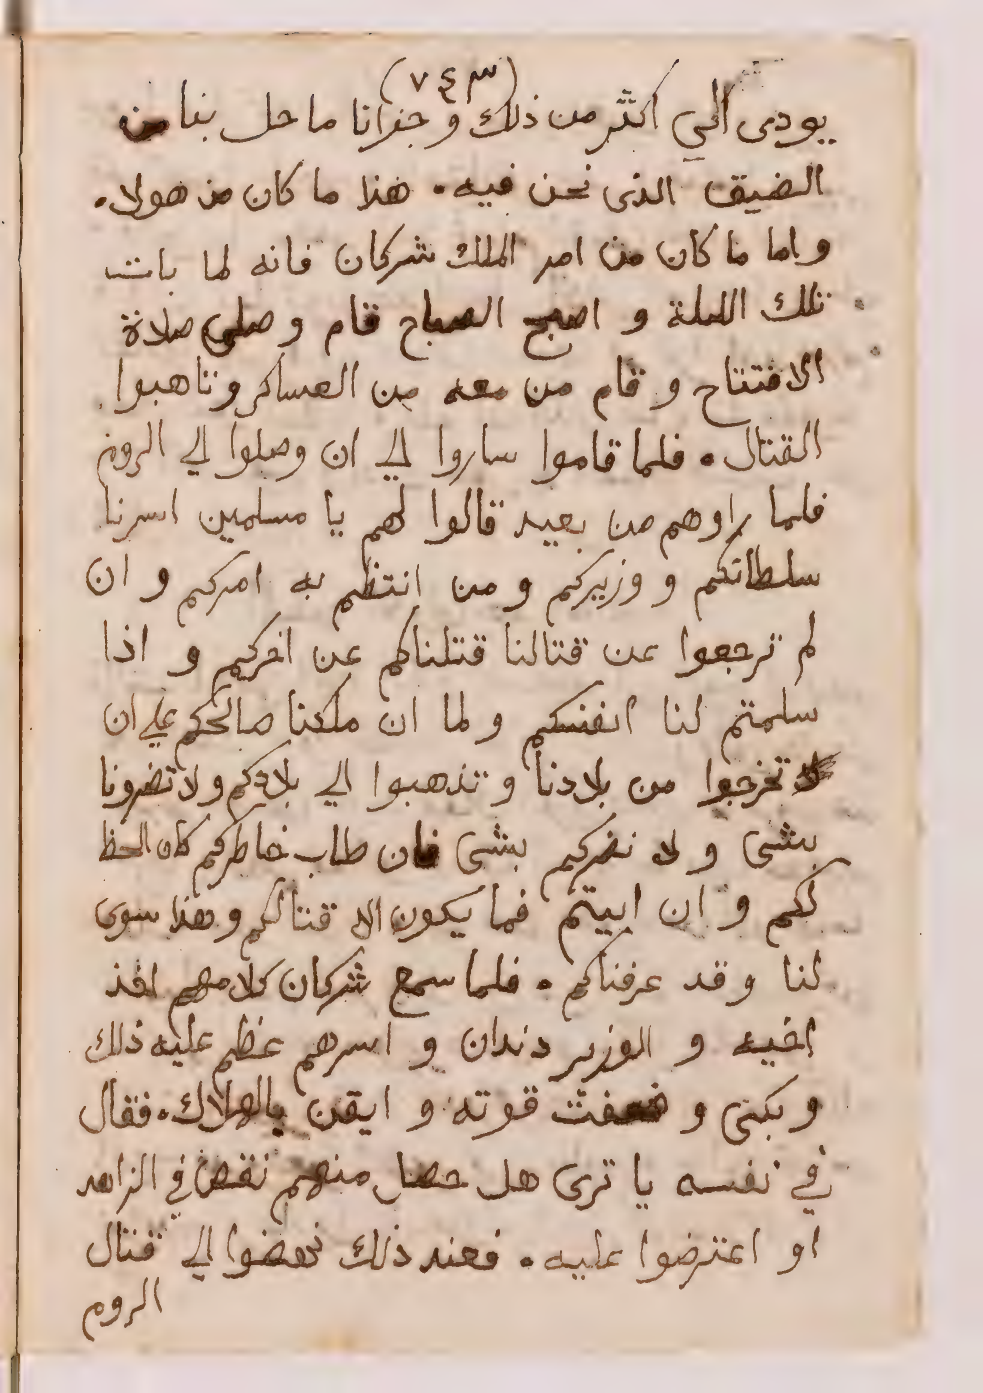 (٧٤٣)
يودى الي اكثر من ذلك و جزانا ما حل بنا من
الضيق الذى نحن فيه. هذا ما كان من هولا.
واما ما كان من امر الملك شركان فانه لما بات
تلك الليلة و اصبح الصباح قام و صلى صلاة
الافتتاح و قام من معه من العساكر و تاهبوا
القتال. فلما قاموا ساروا الي ان وصلوا الي الروم
فلما راوهم من بعيد قالوا لهم يا مسلمين اسرنا
سلطانكم و وزيركم و من انتظم به امركم و ان
لم ترجعوا عن قتالنا قتلناكم عن اخركم و اذا
سلمتم لنا انفسكم و لما ان ملكنا صالحكم علي ان
تخرجوا من بلادنا و تذهبوا الي بلادكم و لا تضرونا
بشى و لا نضركم بشى فان طاب خاطركم كان الحظ
لكم و ان ابيتم فما يكون الا قتالكم و هذا سوى
لنا و قد عرفناكم. فلما سمع شركان كلامهم اخذ
اخيه و الوزير دندان و اسرهم عظم عليه ذلك
و بكى و ضعفت قوته و ايقن بالهلاك. فقال
في نفسه يا ترى هل حصل منهم نقص في الزاهد
او اعترضوا عليه. فعند ذلك نهضوا الي قتال
الروم